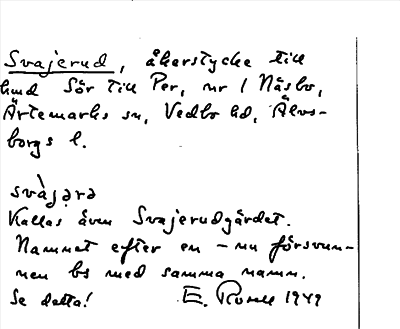 Svajerud, åkerstycke till
hmd Sör till Per, nr 1 Näsbo,
Ärtemarks sn, Vedbo hd, Älvs-
borgs l.
svàjərə
Kallas även Svajerudgärdet.
Namnet efter en - nu försvun-
nen bs med samma namn.
Se detta! E. 1949